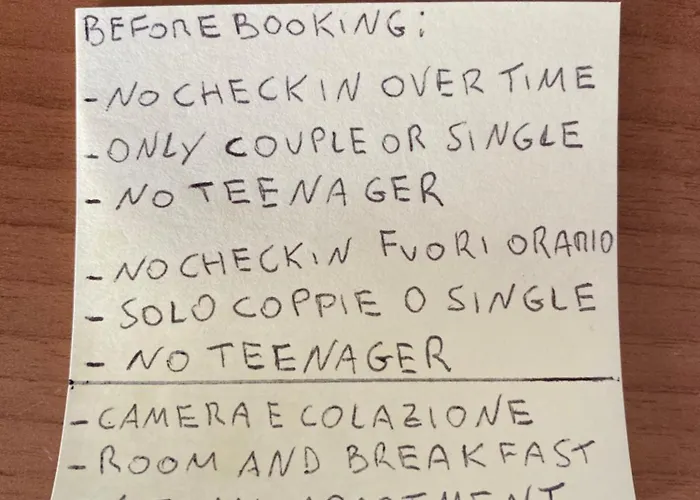 BEFORE BOOKING:
- NO CHECKIN OVER TIME
- ONLY COUPLE OR SINGLE
- NO TEENAGER
- NO CHECKIN FUORI ORARIO
- SOLO COPPIE O SINGLE
- NO TEENAGER
- CAMERA E COLAZIONE
- ROOM AND BREAKFAST